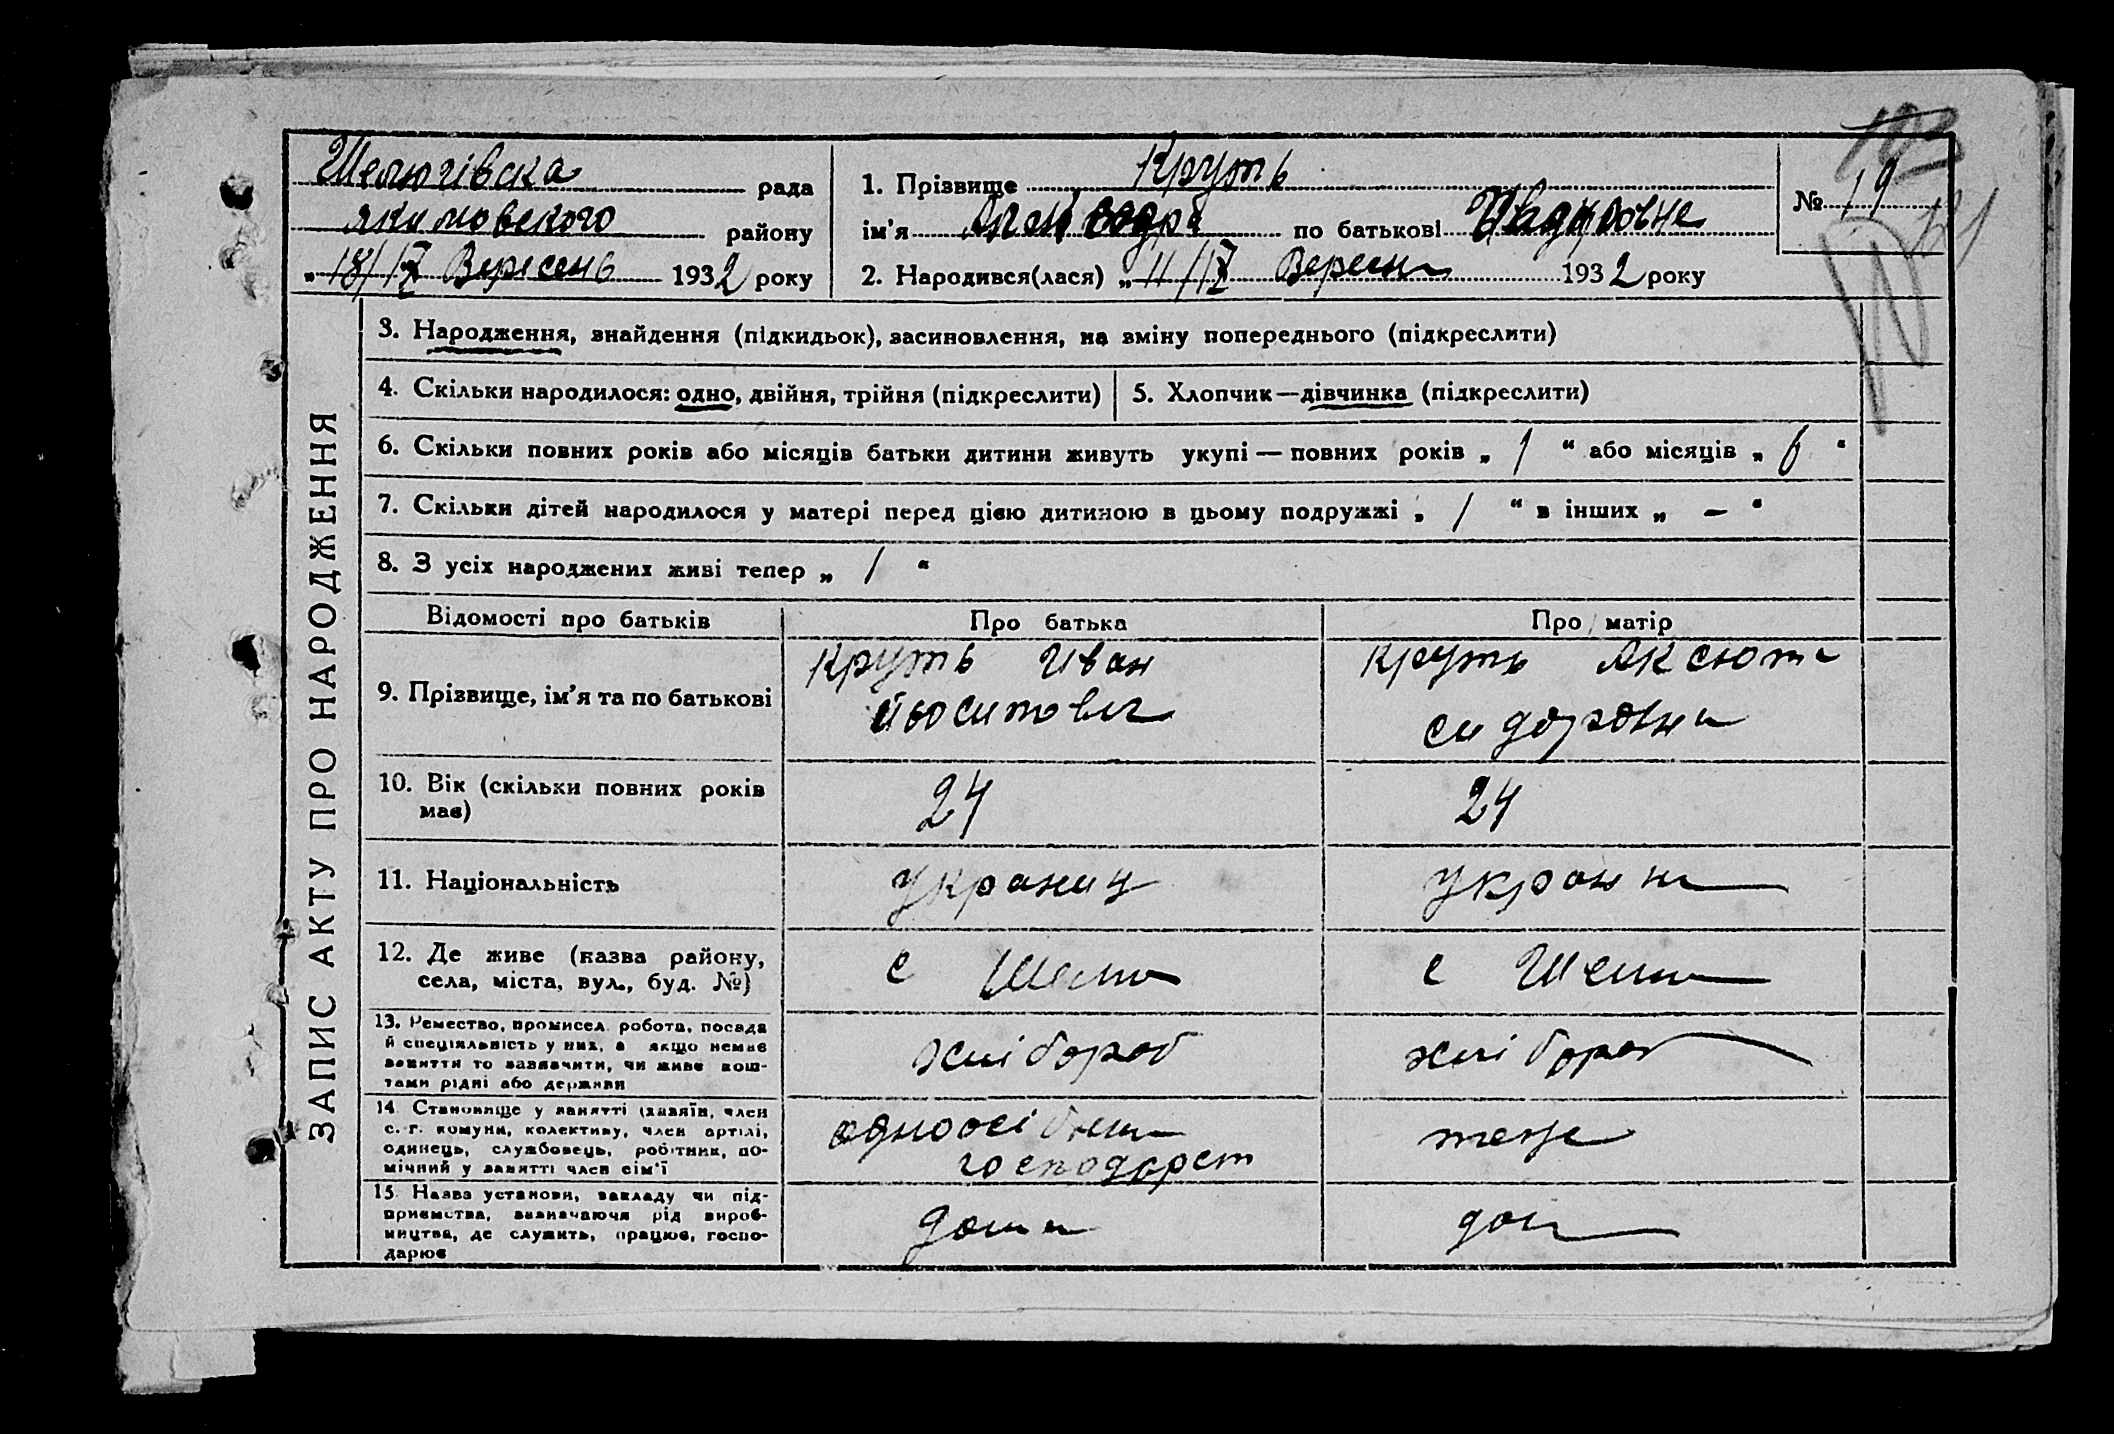 103
Шелюгівска рада
якимовского району
„18/ІХ Вересень 1932 року
1. Прізвище Круть
ім'я по батькові
2. Народився(лася) „11/ІХ Вересн 1932 року
№ 19
121
ЗАПИС АКТУ ПРО НАРОДЖЕННЯ
3. Народження, знайдення (підкидьок), засиновлення, на зміну попереднього (підкреслити)
4. Скільки народилося: одно, двійня, трійня (підкреслити)
5. Хлопчик—дівчинка (підкреслити)
6. Скільки повних років або місяців батьки дитини живуть укупі — повних років „ 1 “ або місяців „ 6 “
7. Скільки дітей народилося у матері перед цією дитиною в цьому подружжі „ 1 “ в інших „ – “
8. З усіх народжених живі тепер „ 1 “
Відомості про батьків Про батька Про матір
9. Прізвище, ім'я та по батькові
Круть Иван
Йосипович
Круть Аксюта
сидоровна
10. Вік (скільки повних років має)
24
24
11. Національність
украниц
укран
12. Де живе (назва району,
села, міста, вул., буд. №)
с Шелю
с Шелю
13. Ремество, промисел, робота, посада
й спеціяльність у них, а якщо немає
заняття то зазначити, чи живе кош-
тами рідні або держави
хлібороб
хлібороб
14. Становище у занятті (хазяїн, член
с.-г. комуни, колективу, член артілі,
одинець, службовець, робітник, по-
мічний у занятті член сім'ї
одноосібне
господарст
теже
15. Назва установи, закладу чи під-
приємства, зазначаючи рід вироб-
ництва, де служить, працює, госпо-
дарює
дома
дом